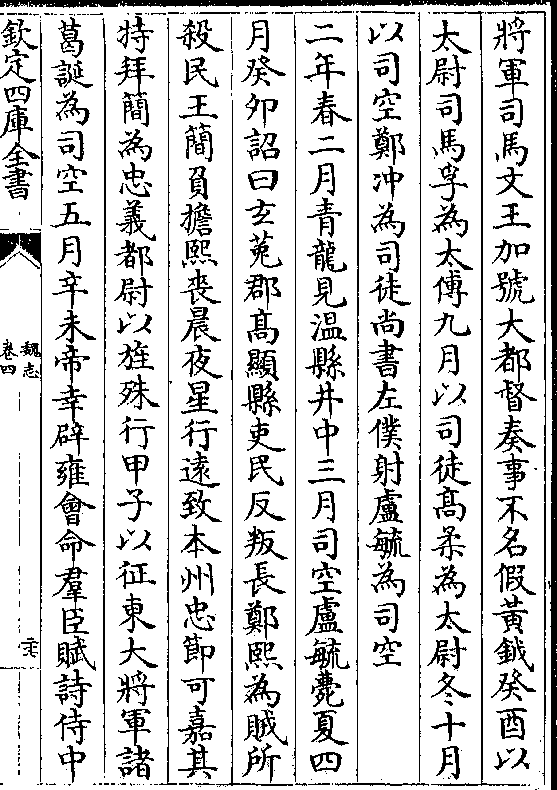 將軍司馬文王加號大都督奏事不名假黃鉞癸酉以
太尉司馬孚為太傅九月以司徒髙柔為太尉冬十月
以司空鄭冲為司徒尚書左僕射盧毓為司空
二年春二月青龍見温縣井中三月司空盧毓薨夏四
月癸夘詔曰玄菟郡髙顯縣吏民反叛長鄭熙為賊所
殺民王簡負擔熙喪晨夜星行遠致本州忠節可嘉其
特拜簡為忠義都尉以旌殊行甲子以征東大將軍諸
葛誕為司空五月辛未帝幸辟雍會命羣臣賦詩侍中
欽定四庫全書
魏志
卷四